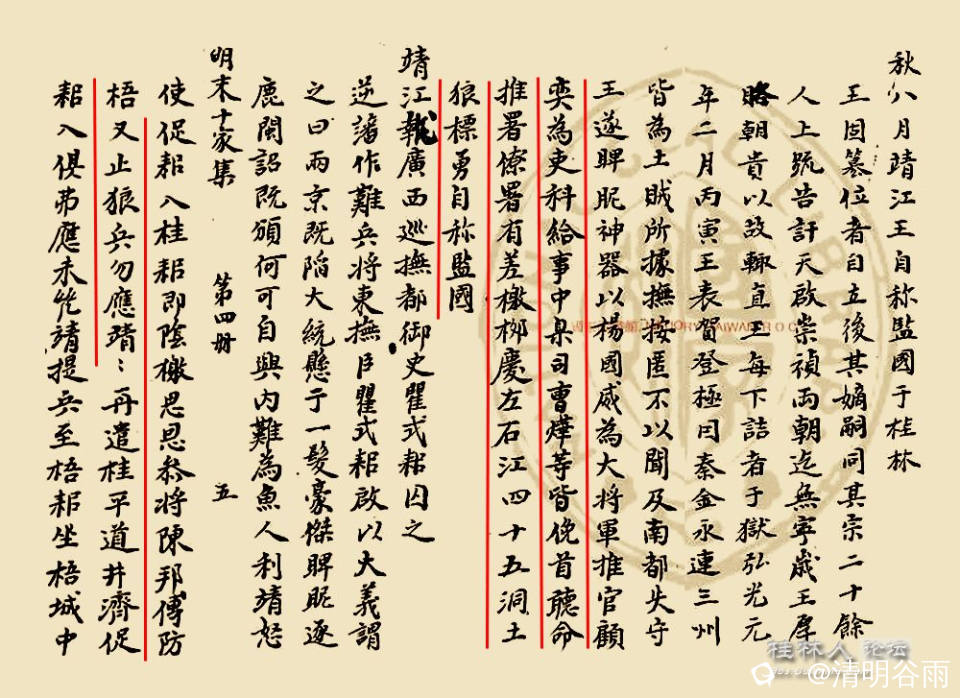 秋八月靖江王自称監國于桂林
王固篡位者自立後其嫡嗣同其宗二十餘
人上號告訐天啟崇禎両朝迄無寧歲王厚
賂朝貴以故輙直王每下詰者于獄弘光元
年二月丙寅王表賀登極曰秦金永連三州
皆為土賊所據撫按匿不以聞及南都失守
王遂睥睨神器以楊國威為大将軍推官顧
奕為吏科給事中臬司曹燁等皆俛首聽命
推署僚署有差檄桞慶左右江四十五洞土
狼標勇自称監國
靖江執廣西巡撫都御史瞿式耜囚之
逆藩作難兵将東撫臣瞿式耜啟以大義謂
之曰兩京既陷大統懸于一髮豪傑睥睨逐
鹿閩詔既頒何可自興内難為魚人利靖怒
明末十家集 第四册 五
使促耜入桂耜即陰檄思恩叅将陳邦傅防
梧又止狼兵勿應靖:再遣桂平道井濟促
耜入俱弗應未幾靖提兵至梧耜坐梧城中
桂林人 论坛
@清明谷雨